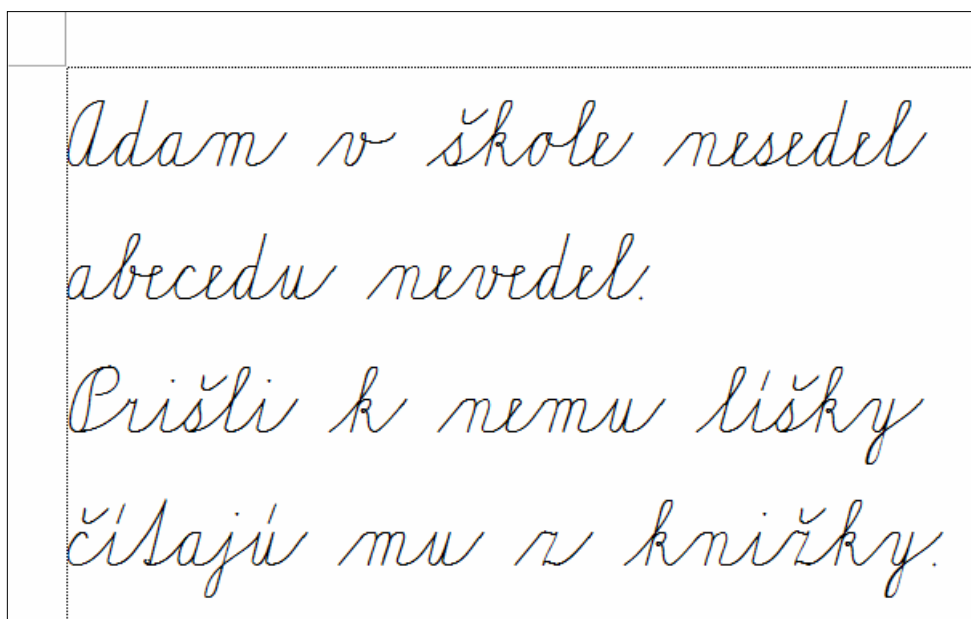 Adam v škole nesedel
abecedu nevedel.
Prišli k nemu líšky
čítajú mu z knižky.